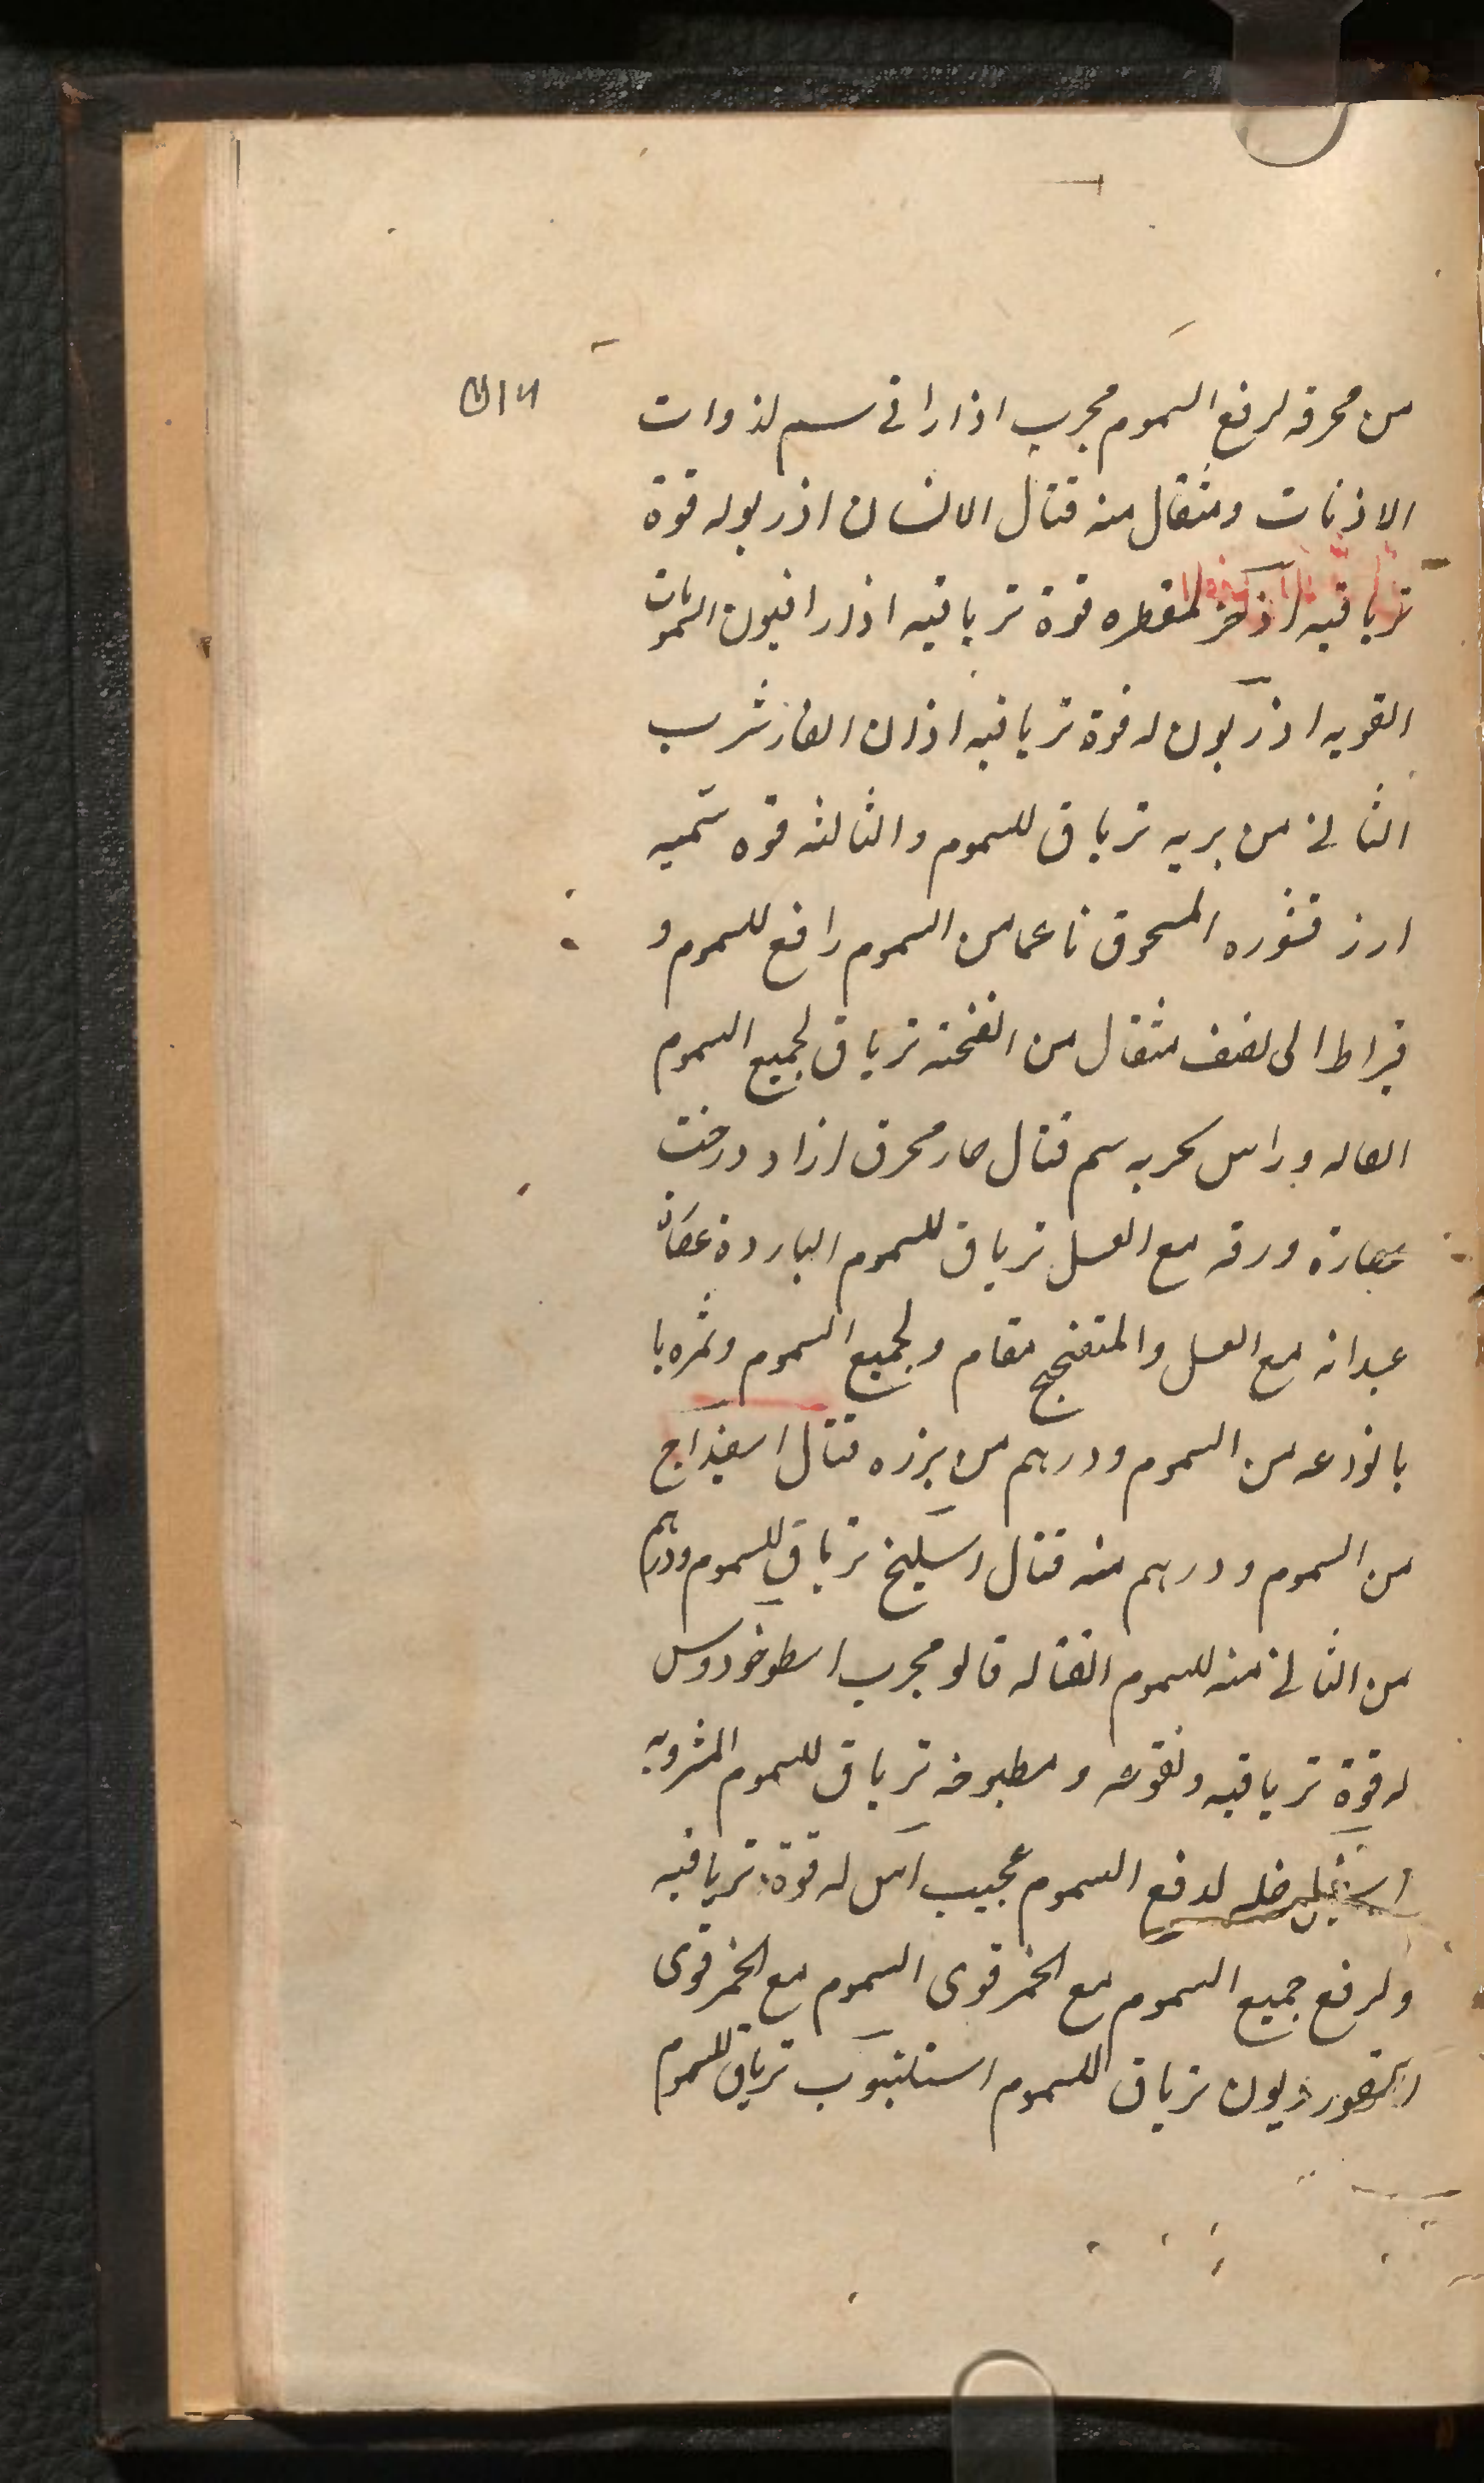 من محرقه لرفع السموم مجرب اذاراقي سم لذوات
الاذنات ومثقال منه قتال الانسان اذربويه قوة
ترياقيه اذخر لمقطره قوة ترياقيه اذارافيون السمومات
القويه اذريون له قوة ترياقيه اذان الفار شرب
الثاني من بريه ترياق للسموم والثالثه قوه سميه
ارز قشوره المسحوق ناعما من السموم رافع للسموم و
قيراط الى نصف مثقال من انفحته ترياق لجميع السموم
القتاله وراس بحريه سم قتال حار محرق ازاد درخت
عصارة ورقه مع العسل ترياق للسموم الباردة عصارة
عيدانه مع العسل والمتفنجح مقام ولجميع السموم وثمره با
بانوذعه من السموم ودرهم من بزره قتال اسفيداج
من السموم ودرهم منه قتال اسليخ ترياق للسموم ودرهم
من الثاني منه للسموم القتاله قالو مجرب اسطوخودوس
له قوة ترياقيه ونقوعه ومطبوخه ترياق للسموم المشروبه
اسقيل خله لدفع السموم عجيب اس له قوة ترياقيه
ولرفع جميع السموم مع الخمر قوى السموم مع الخمر قوى
اسقورديون ترياق للسموم استلتبوب ترياق للسموم